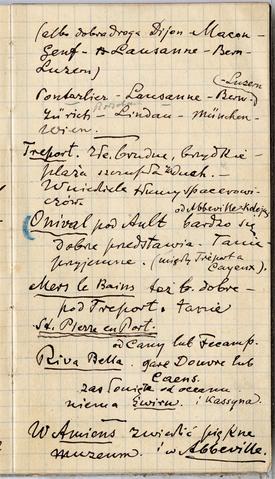 (albo dobra droga Dijon Macon-
Genf - Lausanne - Bern-
Luzern)
Pontarlier - Lausanne - Bern -
(-Luzern
Zürich - Lindau - München-
Wien.
Treport. Złe, brudne, brzydkie
plaża
Onival pod Ault bardzo się
od Abbeville Koleją
dobrze przedstawia - Tanie
przyjemne. (między Tréport a
Cayeux).
Mers le Bains też b. dobre-
pod Treport. tanie
St. Pierre en Port.
od Cany lub Fecamp.
Riva Bella. gare Douvre lub
Caens.
od oceanu
niema żwiru i Kassyna.
W Amiens zwiedzić piękne
muzeum. i w Abbeville.